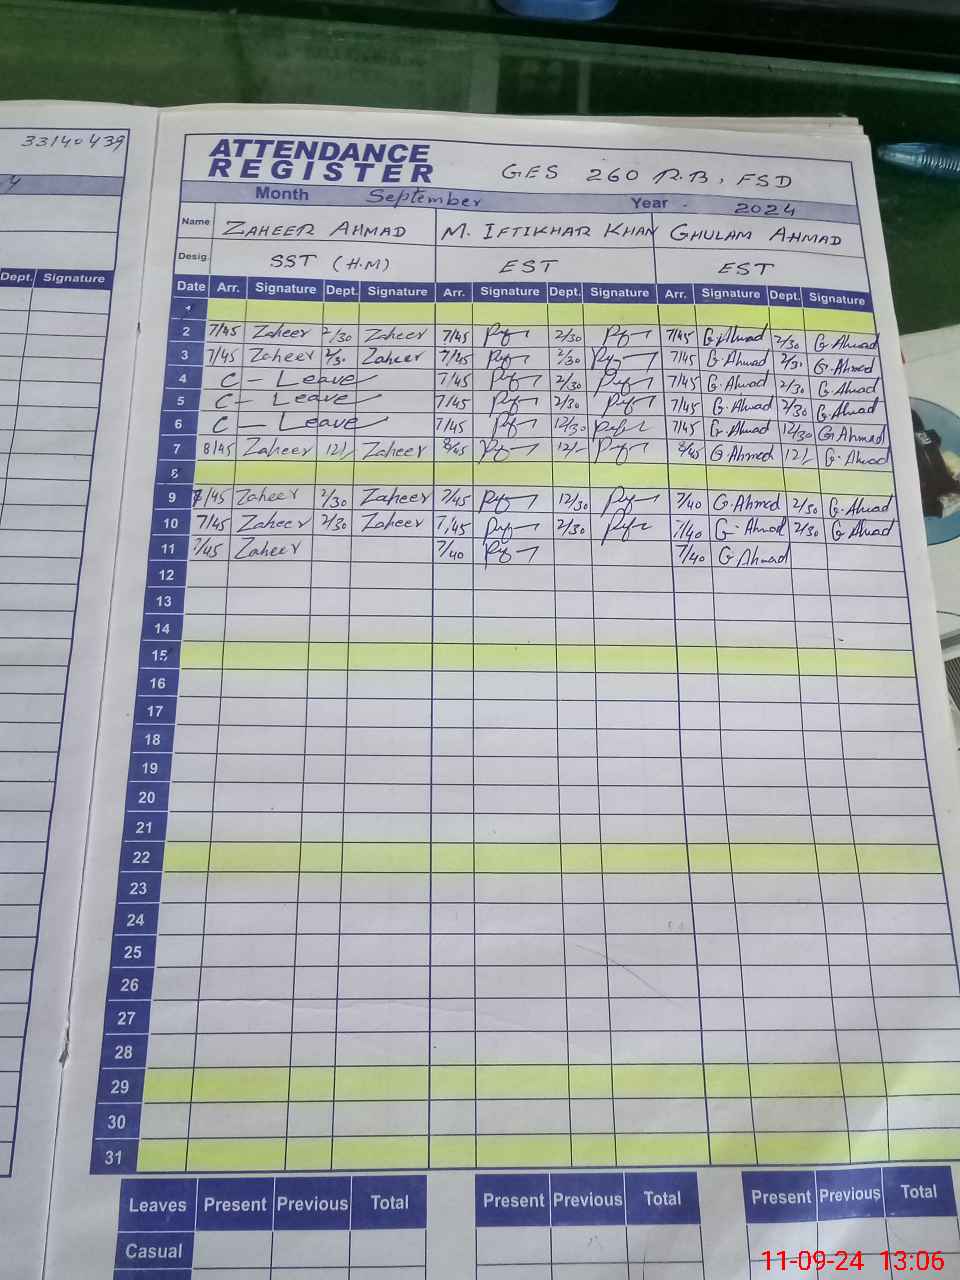 33140439
Dept. Signature
ATTENDANCE
REGISTER
GES 260 R.B, FSD
Month September Year 2024
Name ZAHEER AHMAD M. IFTIKHAR KHAN GHULAM AHMAD
Desig. SST (H.M) EST EST
Date Arr. Signature Dept. Signature Arr. Signature Dept. Signature Arr. Signature Dept. Signature
1
2 7/45 Zaheer 2/30 Zaheer 7/45 2/30 7/45 G.Ahmad 2/30 G Ahmad
3 7/45 Zaheer 2/30 Zaheer 7/45 2/30 7/45 G Ahmad 2/30 G.Ahmad
4 C - Leave 7/45 2/30 7/45 G.Ahmad 2/30 G Ahmad
5 C - Leave 7/45 2/30 7/45 G.Ahmad 2/30 G.Ahmad
6 C - Leave 7/45 12/30 7/45 G.Ahmad 12/30 G Ahmad
7 8/45 Zaheer 12/- Zaheer 8/45 12/- 8/45 G Ahmad 12/- G.Ahmad
8
9 7/45 Zaheer 2/30 Zaheer 7/45 12/30 7/40 G.Ahmad 2/30 G.Ahmad
10 7/45 Zaheer 2/30 Zaheer 7/45 2/30 7/40 G Ahmad 2/30 G Ahmad
11 7/45 Zaheer 7/40 7/40 G Ahmad
12
13
14
15
16
17
18
19
20
21
22
23
24
25
26
27
28
29
30
31
Leaves Present Previous Total Present Previous Total Present Previous Total
Casual
11-09-24 13:06